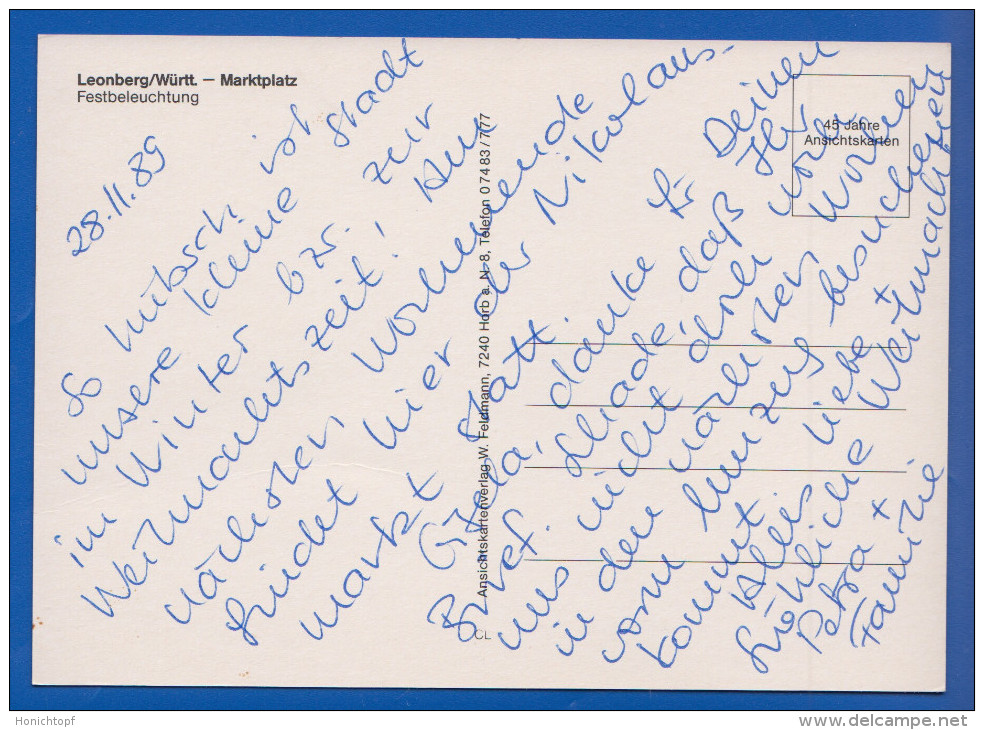 Leonberg/Württ. — Marktplatz
Festbeleuchtung
28.11.89
So hübsch ist
unsere kleine Stadt
im Winter bzr. zur
Weihnachtszeit! Am
nächsten Wochenende
findet hier der Nikolaus-
markt statt.
Gisela, danke für Deinen
Brief. Schade, daß Ihr
uns nicht
in den nächsten Wochen
kommt. besuchen
Alles Liebe +
fröhliche Weihnachten
Petra +
Familie
Ansichtskartenverlag W. Feldmann, 7240 Horb a. N.-8, Telefon 07483/777
CL
45 Jahre
Ansichtskarten
Honichtopf
www.delcampe.net